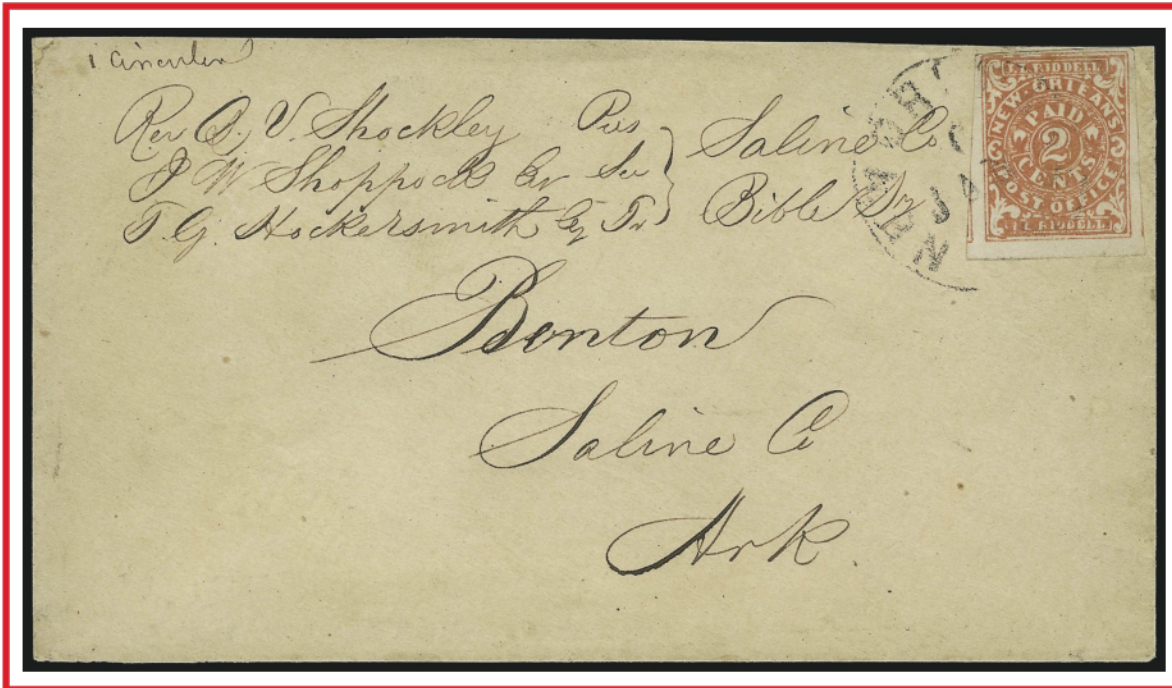 1 Circular
Rev B. V. Shockley Pres
J W Shoppock Cor Sec
T. G. Hockersmith Tr
Saline Co
Bible Sy
Benton
Saline Co
Ark.
J. L. RIDDELL
NEW ORLEANS
PAID
2
CENTS
POST OFFICE
J. L. RIDDELL